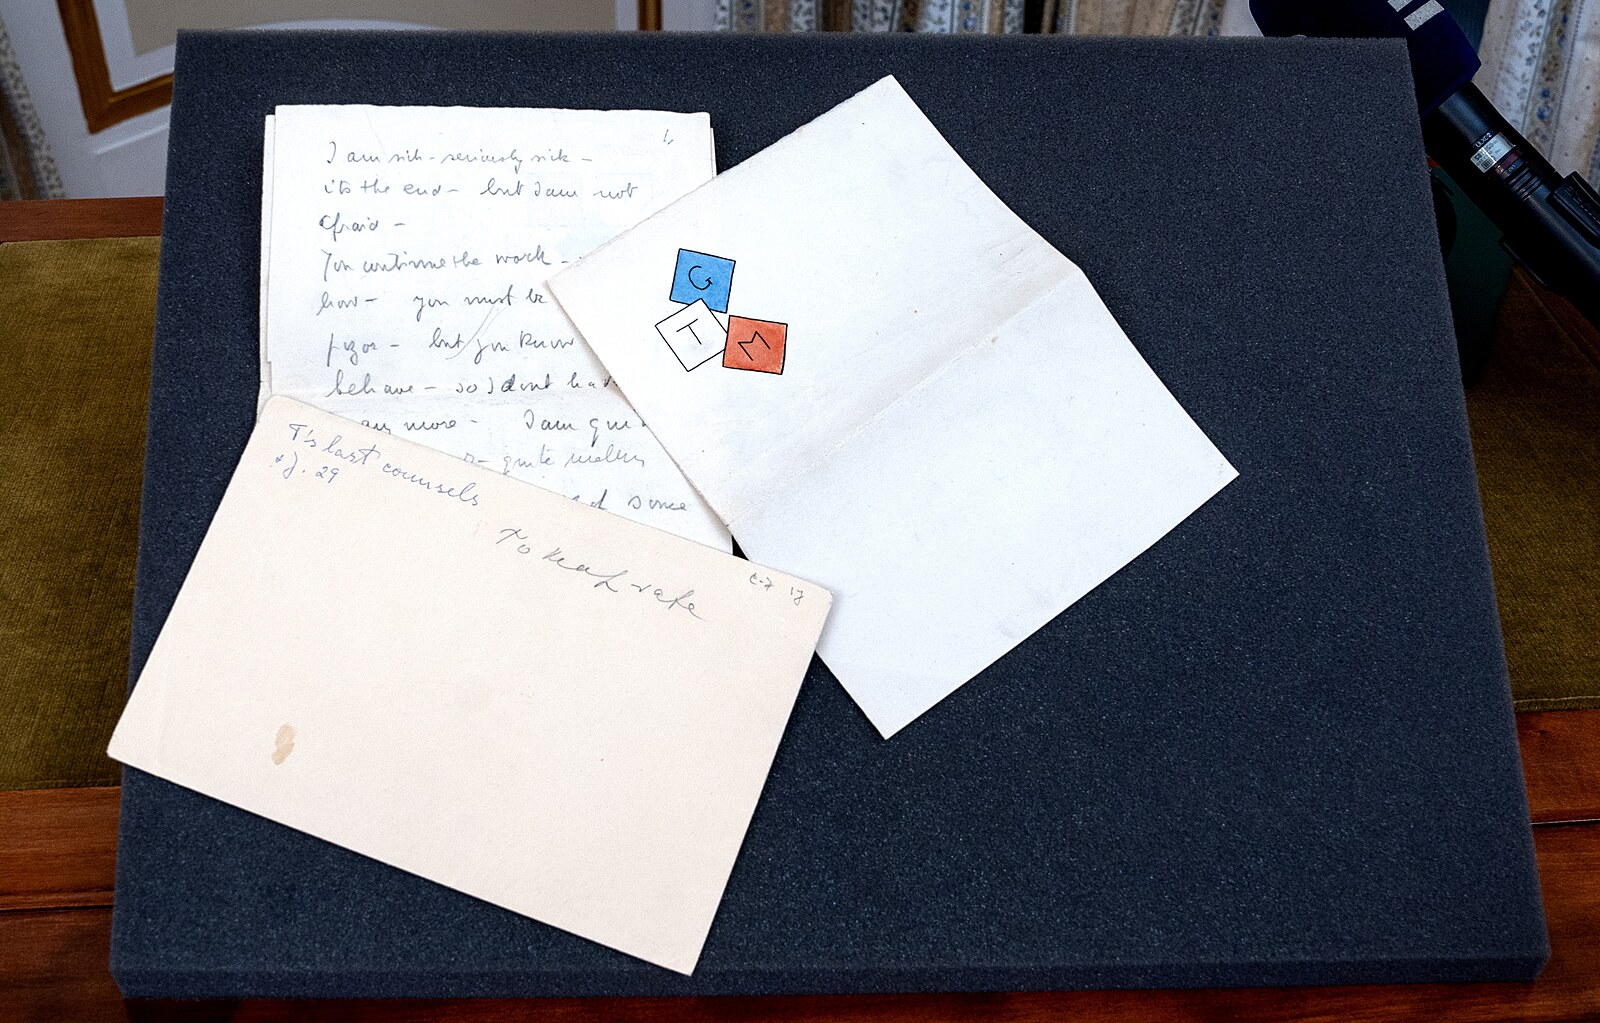 I am sick - seriously sick -
its the end - but I am not
afraid -
You continue the work -
how - you must be
but you know
behave - so I dont hav
any more - I am qui
quite
some
G
T
M
T's last counsels
J. 29
To
C-7 17